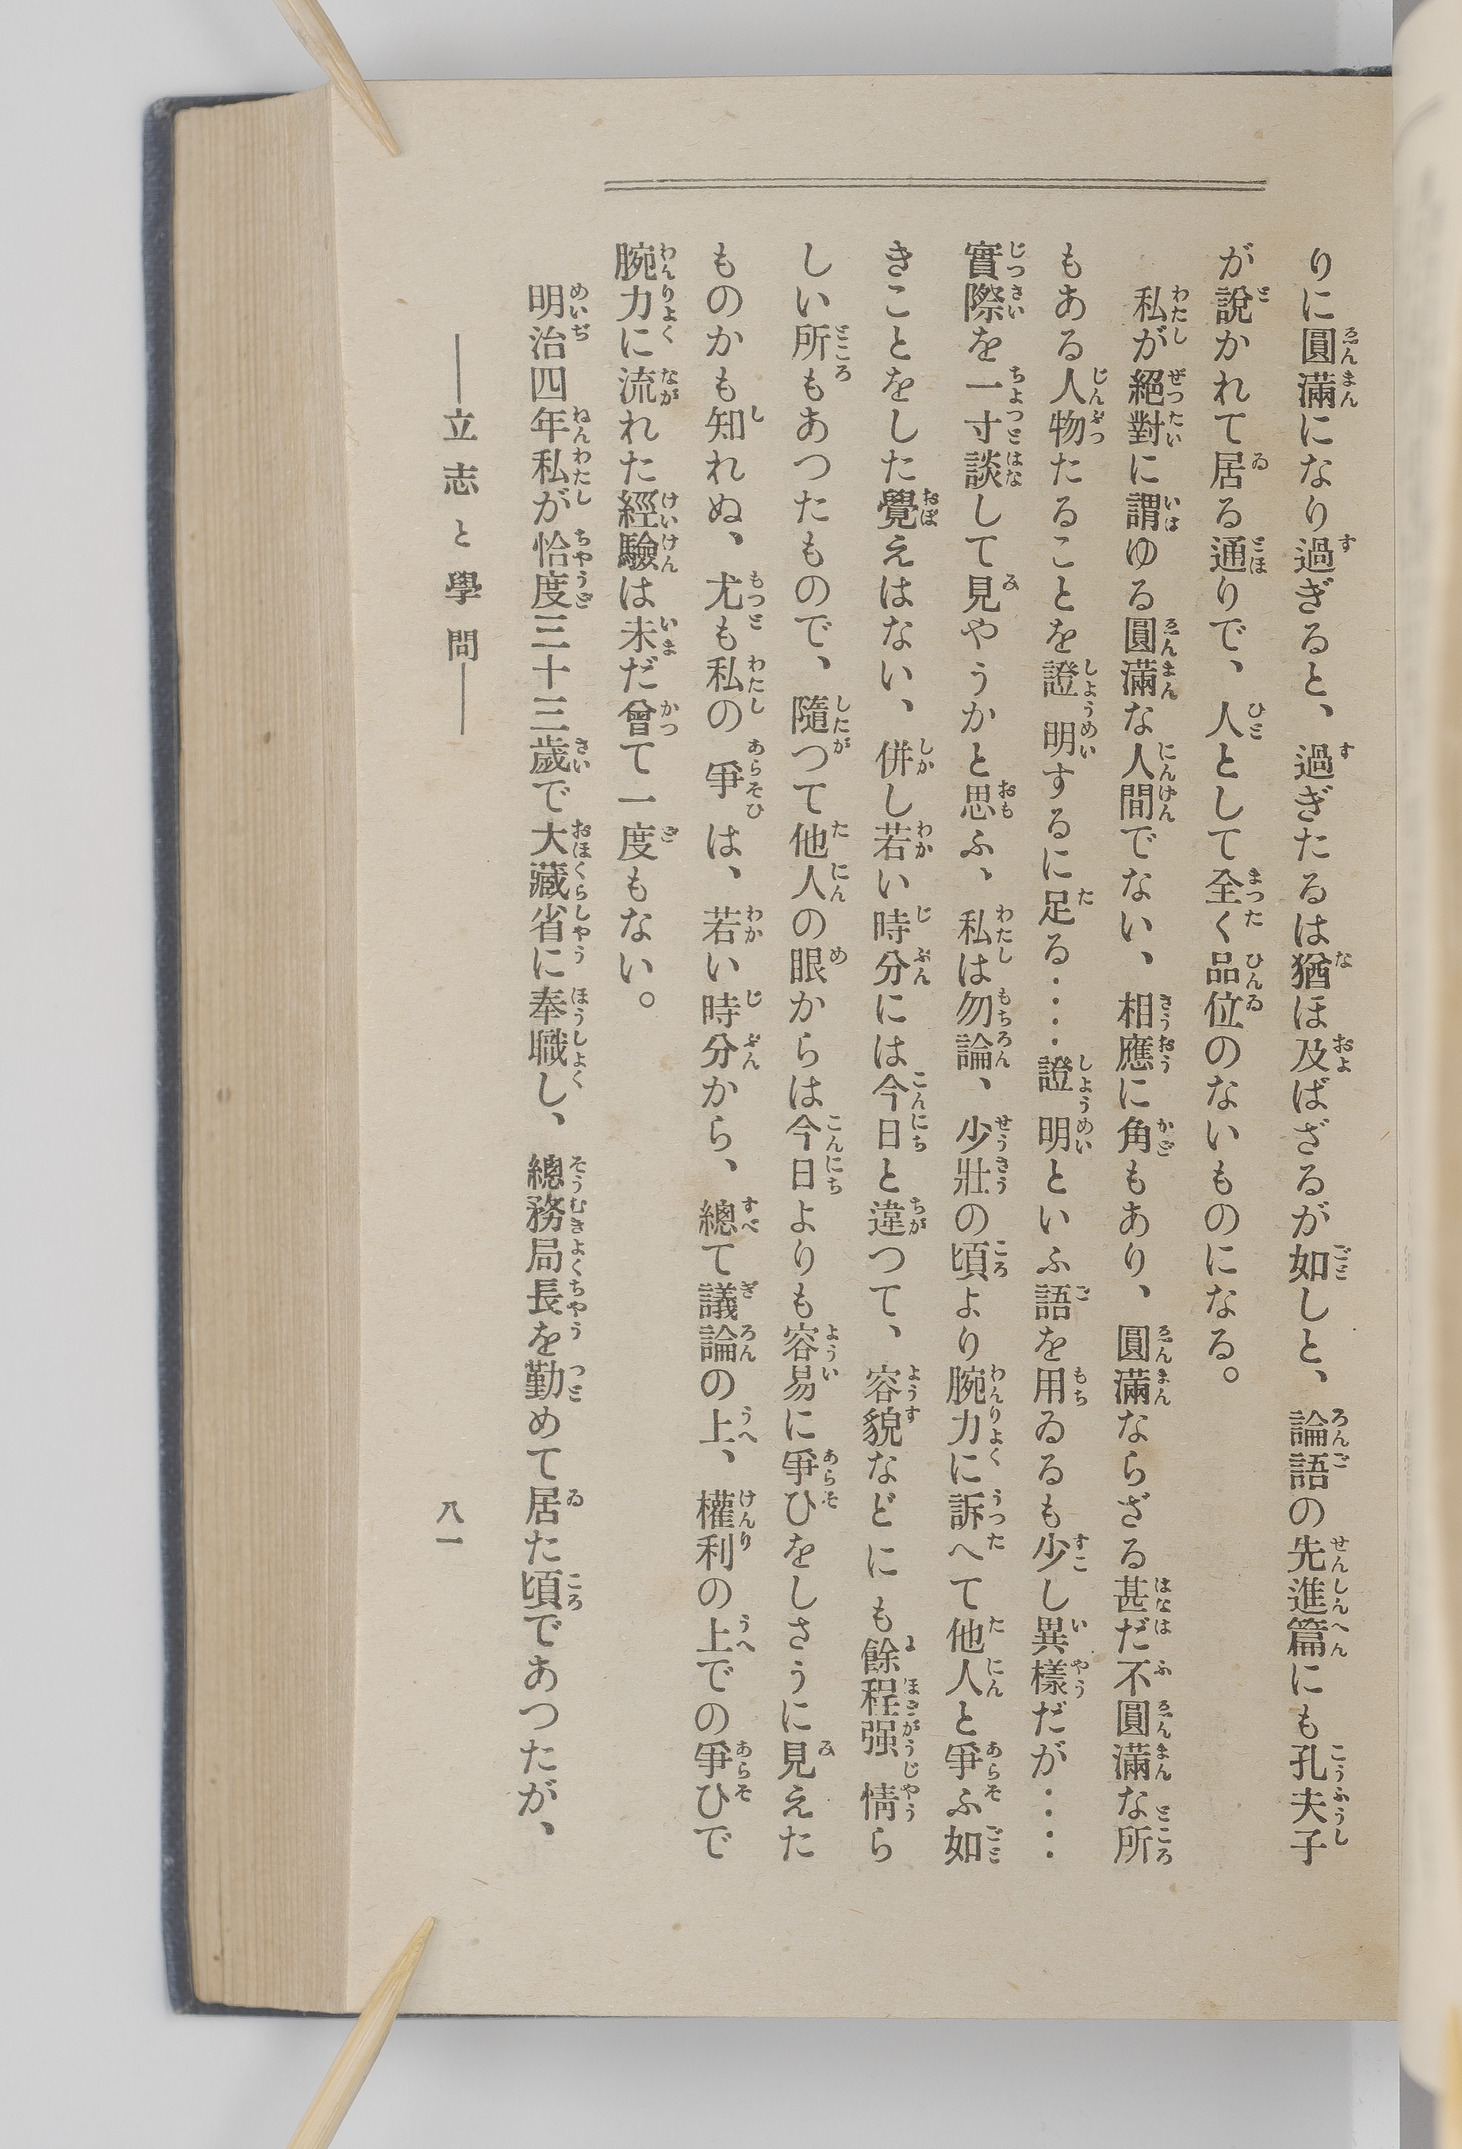 りに圓滿になり過ぎると、過ぎたるは猶ほ及ばざるが如しと、論語の先進篇にも孔夫子
が說かれて居る通りで、人として全く品位のないものになる。
私が絕對に謂ゆる圓滿な人間でない、相應に角もあり、圓滿ならざる甚だ不圓滿な所
もある人物たることを證明するに足る‥‥證明といふ語を用ゐるも少し異樣だが‥‥
實際を一寸談して見やうかと思ふ、私は勿論、少壯の頃より腕力に訴へて他人と爭ふ如
きことをした覺えはない、併し若い時分には今日と違つて、容貌などにも餘程强情ら
しい所もあつたもので、隨つて他人の眼からは今日よりも容易に爭ひをしさうに見えた
ものかも知れぬ、尤も私の爭は、若い時分から、總て議論の上、權利の上での爭ひで
腕力に流れた經驗は未だ曾て一度もない。
明治四年私が恰度三十三歲で大藏省に奉職し、總務局長を勤めて居た頃であつたが、
――立志と學問――
八一